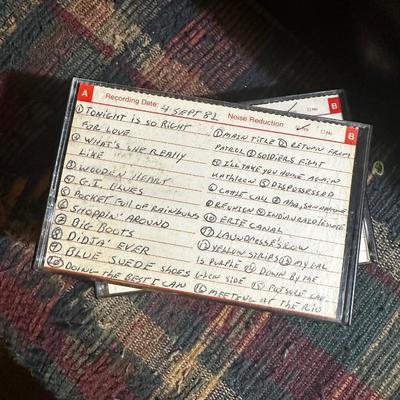 A Recording Date: 4 SEPT 82 Noise Reduction Yes No B
B
No
① TONIGHT IS SO RIGHT
FOR LOVE
② WHAT'S SHE REALLY
LIKE
③ WOODEN HEART
④ G.I. BLUES
⑤ POCKET FULL OF RAINBOWS
⑥ SHOPPIN' AROUND
⑦ BIG BOOTS
⑧ DIDJA' EVER
⑨ BLUE SUEDE SHOES
⑩ DOING THE BEST I CAN
① MAIN TITLE ② RETURN FROM
PATROL ③ SOLDIERS FIGHT
④ I'LL TAKE YOU HOME AGAIN
KATHLEEN ⑤ DISPOSSESSED
⑥ CATTLE CALL ⑦ AHA, SAN ANTONE
⑧ REUNION ⑨ INDIAN RAID/ESCAPE
⑩ ERIE CANAL
⑪ LAUNDRESSES ROW
⑫ YELLOW STRIPES ⑬ MY GAL
IS PURPLE ⑭ DOWN BY THE
GLEN SIDE ⑮ PURSUE
⑯ MEETING AT THE RIO